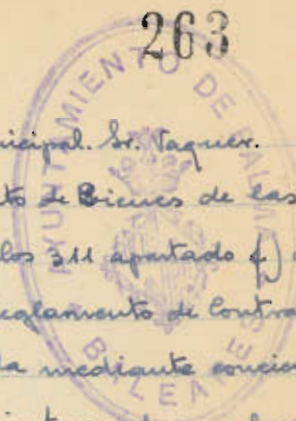 263
AYUNTAMIENTO DE PALMA
BALEARES
nicipal. Sr. Vaquer.
to de Bienes de las
los 311 apartado f)
eglamento de Contra
da mediante concier